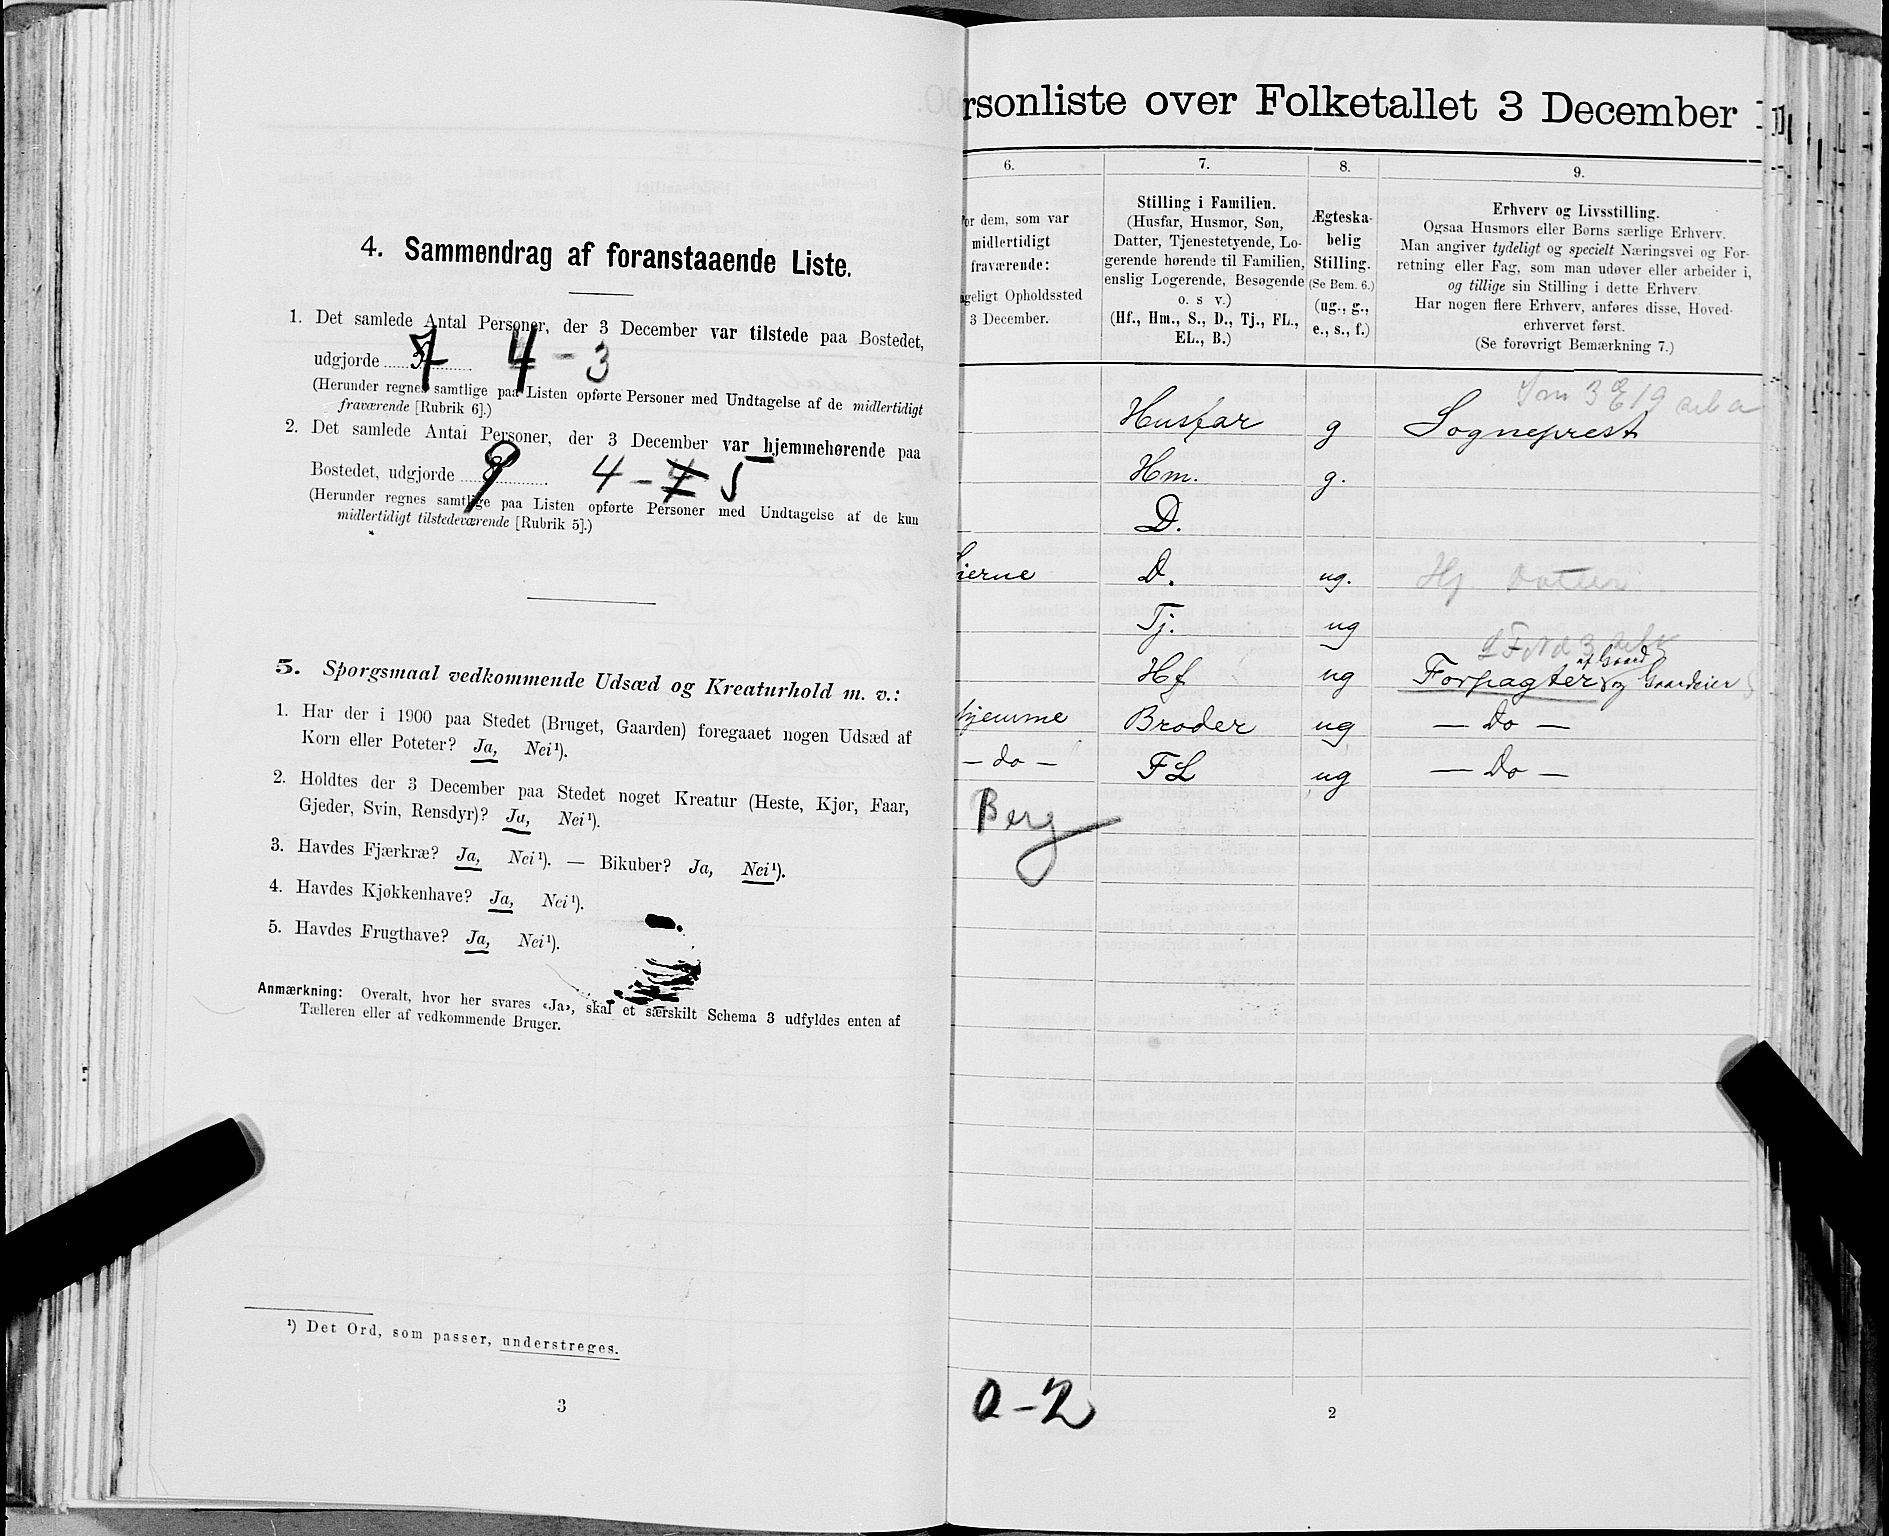 4. Sammendrag af foranstaaende Liste.
1. Det samlede Antal Personer, der 3 December var tilstede paa Bostedet,
udgjorde 7 4 - 3
(Herunder regnes samtlige paa Listen opførte Personer med Undtagelse af de midlertidigt
fraværende [Rubrik 6].)
2. Det samlede Antal Personer, der 3 December var hjemmehørende paa
Bostedet, udgjorde 9 4 - 7 5
(Herunder regnes samtlige paa Listen opførte Personer med Undtagelse af de kun
midlertidigt tilstedeværende [Rubrik 5].)
5. Spørgsmaal vedkommende Udsæd og Kreaturhold m. v.:
1. Har der i 1900 paa Stedet (Bruget, Gaarden) foregaaet nogen Udsæd af
Korn eller Poteter? Ja, Nei¹).
2. Holdtes der 3 December paa Stedet noget Kreatur (Heste, Kjør, Faar,
Gjeder, Svin, Rensdyr)? Ja, Nei¹).
3. Havdes Fjærkræ? Ja, Nei¹). — Bikuber? Ja, Nei¹).
4. Havdes Kjøkkenhave? Ja, Nei¹).
5. Havdes Frugthave? Ja, Nei¹).
Anmærkning: Overalt, hvor her svares «Ja», skal et særskilt Schema 3 udfyldes enten af
Tælleren eller af vedkommende Bruger.
¹) Det Ord, som passer, understreges.
3
rsonliste over Folketallet 3 December 1
6. 7. 8. 9.
or dem, som var
midlertidigt
fraværende:
geligt Opholdssted
3 December.
Stilling i Familien.
(Husfar, Husmor, Søn,
Datter, Tjenestetyende, Lo-
gerende hørende til Familien,
enslig Logerende, Besøgende
o. s v.)
(Hf., Hm., S., D., Tj., FL.,
EL., B.)
Ægteska-
belig
Stilling.
(Se Bem. 6.)
(ug., g.,
e., s., f.)
Erhverv og Livsstilling.
Ogsaa Husmors eller Børns særlige Erhverv.
Man angiver tydeligt og specielt Næringsvei og For-
retning eller Fag, som man udøver eller arbeider i,
og tillige sin Stilling i dette Erhverv.
Har nogen flere Erhverv, anføres disse, Hoved-
erhvervet først.
(Se forøvrigt Bemærkning 7.)
Husfar g Sogneprest
Hm. g.
D.
ierne D. ug. Hj Datter
Tj. ug
af Gaard
Hf ug Forpagter og Gaardeier
hjemme Broder ug — Do —
— do — FL ug — Do —
Berg
0-2
2